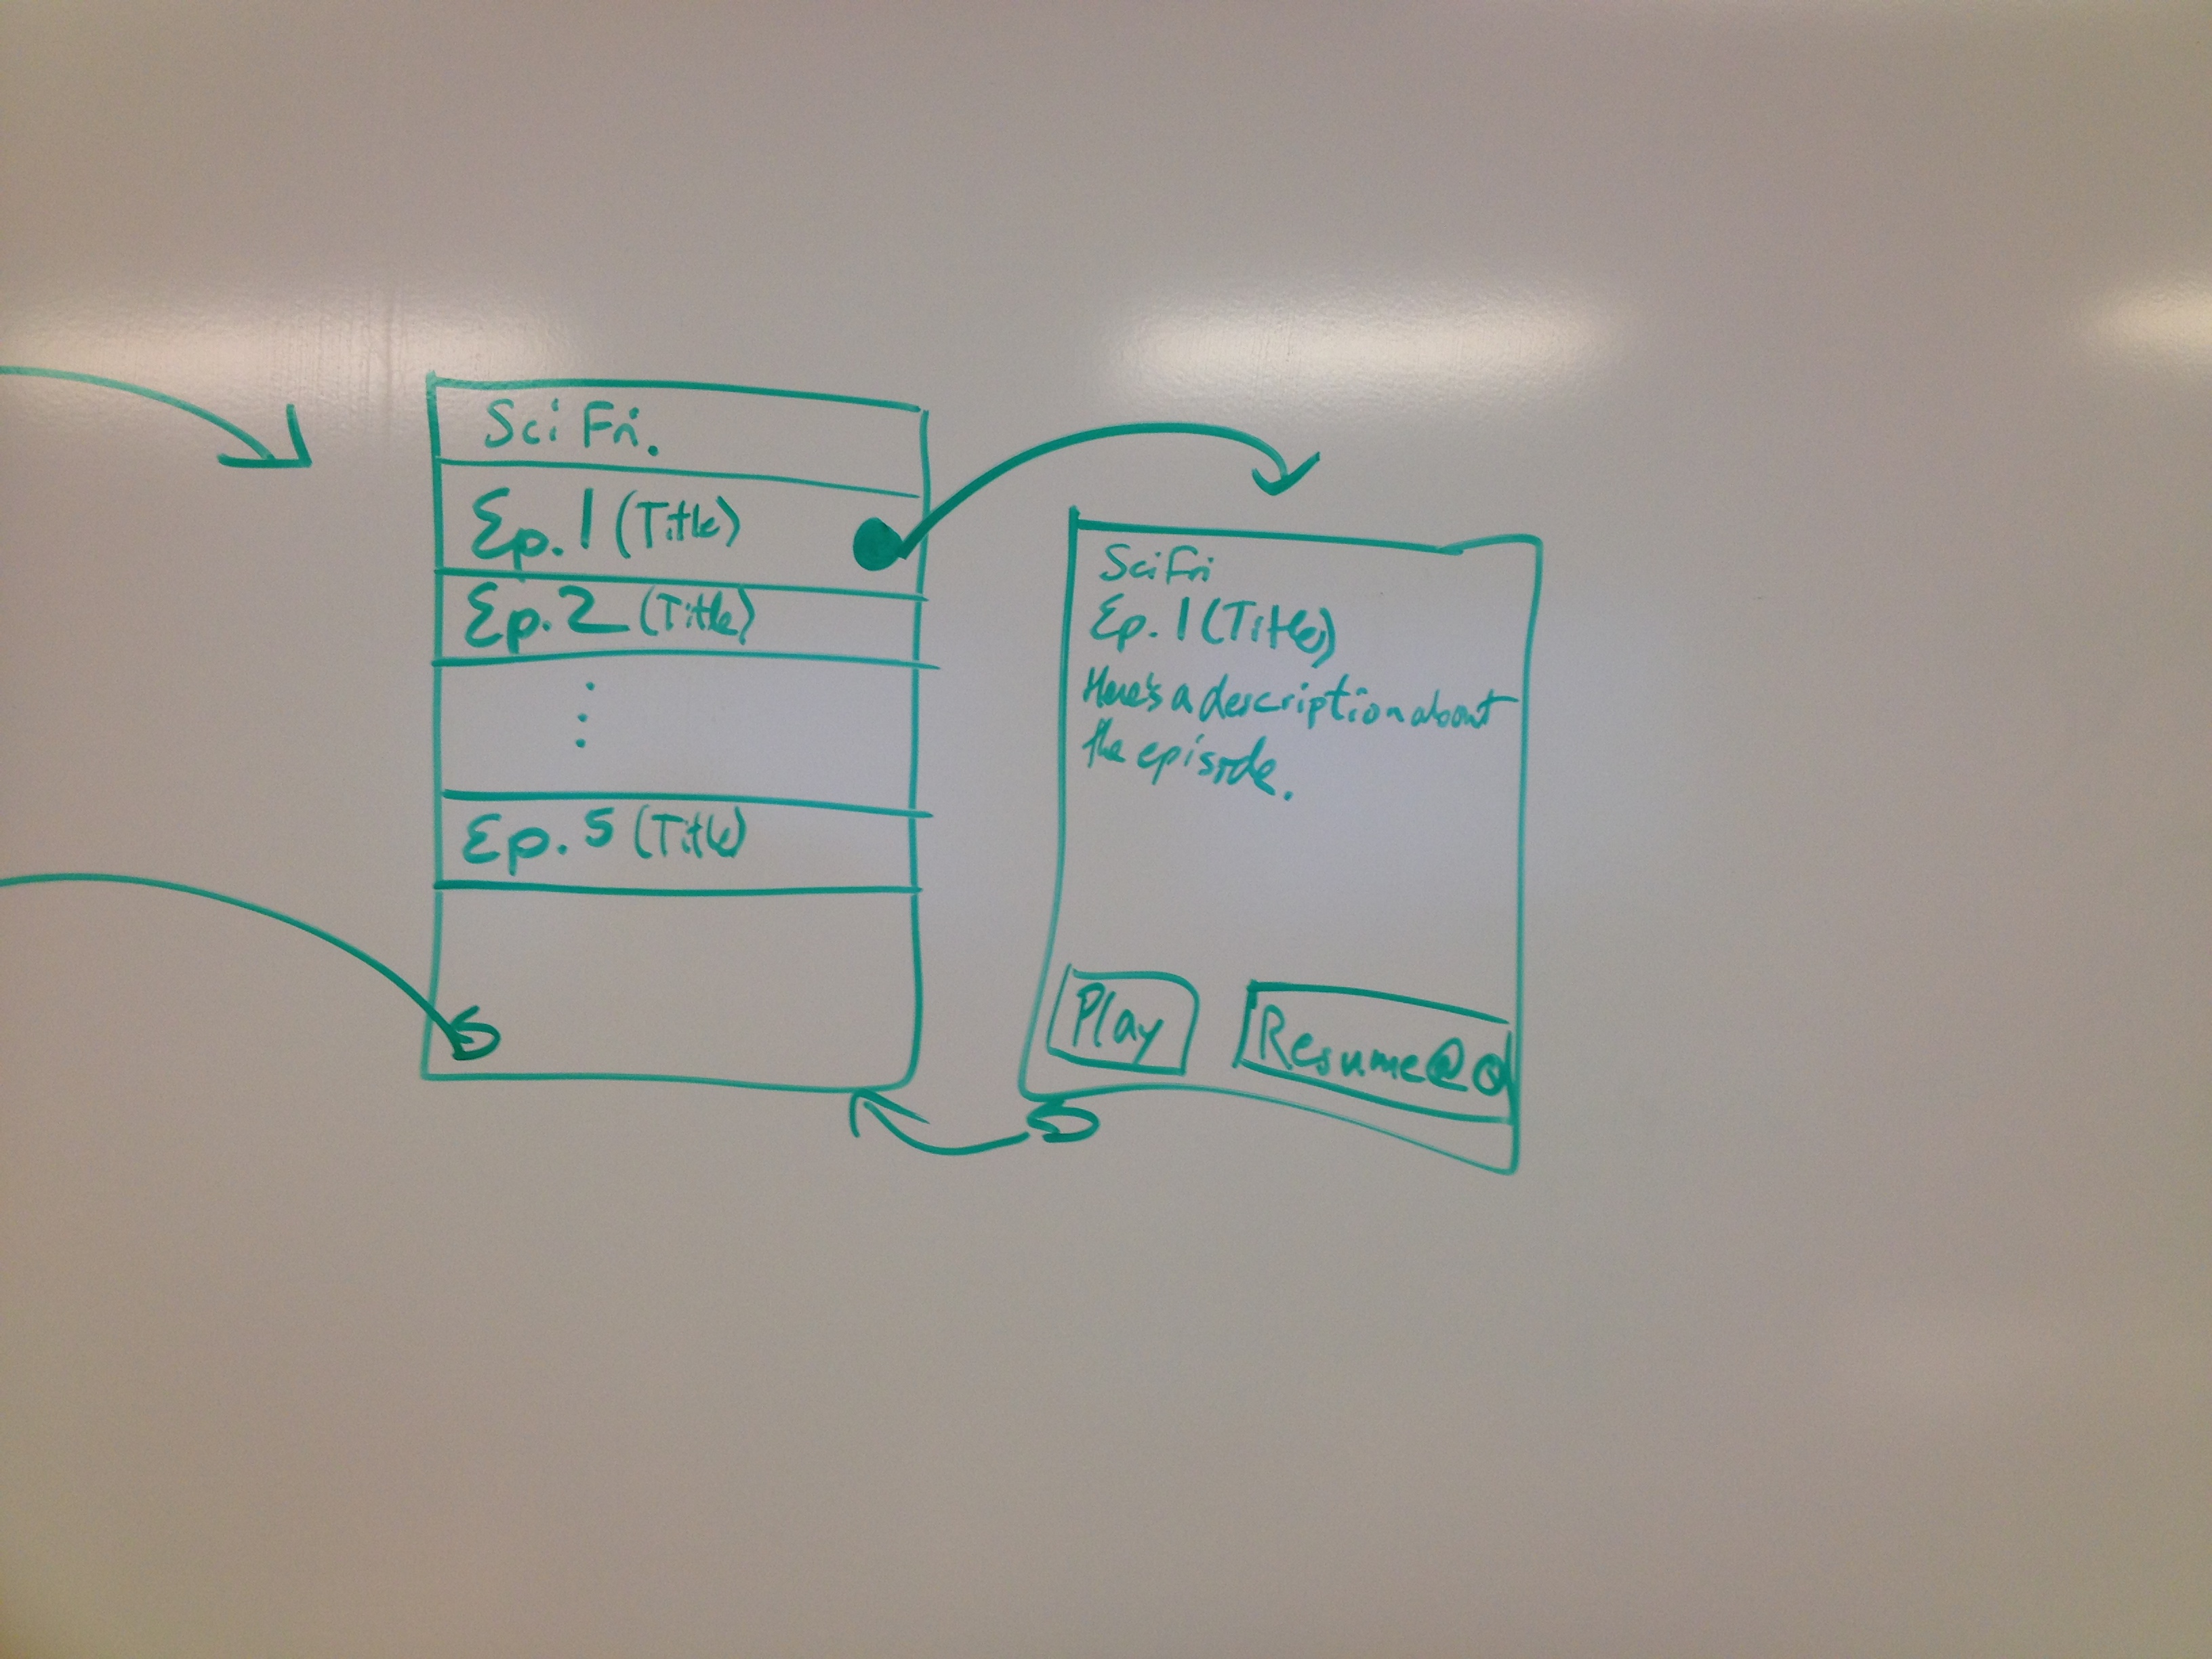 Sci Fri.
Ep. 1 (Title)
Ep. 2 (Title)
Ep. 5 (Title)
Sci Fri
Ep. 1 (Title)
Here's a description about
the episode.
Play
Resume @